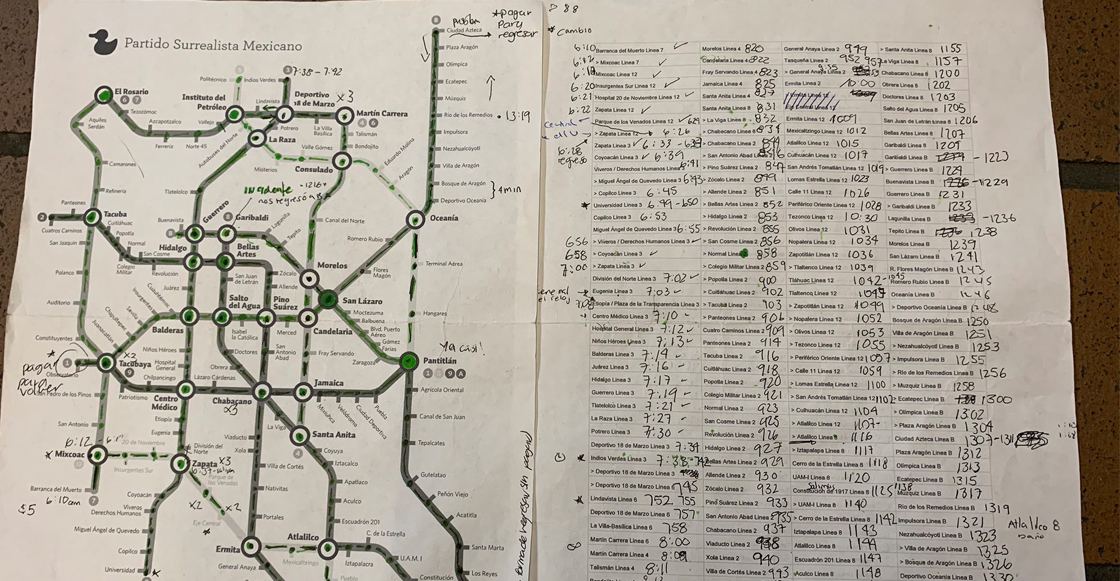 Partido Surrealista Mexicano
pushba
*pagar
para
regresar
Ciudad Azteca
Plaza Aragón
Olímpica
Ecatepec
Múzquiz
Río de los Remedios
13:19
Impulsora
Nezahualcóyotl
Villa de Aragón
Bosque de Aragón
4min
Deportivo Oceanía
Oceanía
Politécnico
Indios Verdes
El Rosario
Instituto del
Petróleo
Lindavista
Deportivo
18 de Marzo
x3
Martín Carrera
Tezozómoc
Azcapotzalco
Ferrería
Norte 45
Vallejo
Potrero
La Villa
Basílica
Talismán
Bondojito
Aquiles
Serdán
La Raza
Autobuses del Norte
Valle Gómez
Misterios
Consulado
Eduardo Molina
Aragón
Camarones
Refinería
Tlatelolco
incidente
nos regresó a B
Canal del Norte
Romero Rubio
Panteones
Tacuba
Cuitláhuac
Popotla
Cuatro Caminos
Normal
San Joaquín
Colegio
Militar
San Cosme
Revolución
Buenavista
Guerrero
Garibaldi
Lagunilla
Tepito
Hidalgo
Bellas
Artes
Morelos
Flores
Magón
Terminal Aérea
Polanco
Auditorio
Constituyentes
San Juan
de Letrán
Zócalo
Allende
San Lázaro
Moctezuma
Balbuena
Blvd. Puerto
Aéreo
Gómez
Farías
Zaragoza
Hangares
Salto
del Agua
Pino
Suárez
Balderas
Candelaria
Merced
Isabel
la Católica
Ya casi!
Pantitlán
Tacubaya
x2
Observatorio
pagar
San Pedro de los Pinos
Niños Héroes
Hospital
General
Chilpancingo
Patriotismo
Lázaro Cárdenas
Obrera
Doctores
San
Antonio
Abad
Fray Servando
Centro
Médico
Chabacano
x3
Jamaica
Agrícola Oriental
Canal de San Juan
Tepalcates
Guelatao
Peñón Viejo
Acatitla
Santa Marta
Los Reyes
San Antonio
Mixcoac
Insurgentes Sur
Etiopía
Eugenia
División del
Norte
Zapata
x3
La Viga
Santa Anita
Viaducto
Xola
Villa de Cortés
Nativitas
Portales
Coyuya
Iztacalco
Apatlaco
Aculco
Escuadrón 201
Barranca del Muerto
6:10am
$5
Coyoacán
Miguel Ángel de Quevedo
Copilco
Universidad
Eje Central
Ermita
General Anaya
Atlalilco
Mexicaltzingo
C. de la Estrella
U.A.M. I
Constitución
*Cambio
6:10 Barranca del Muerto Línea 7
> Mixcoac Línea 7
Mixcoac Línea 12
6:20 Insurgentes Sur Línea 12
6:21 Hospital 20 de Noviembre Línea 12
6:22 Zapata Línea 12
Parque de los Venados Línea 12
> Zapata Línea 12 6:26
6:28 Zapata Línea 3 6:33
regreso Coyoacán Línea 3 6:39
Viveros / Derechos Humanos Línea 3 6:41
> Miguel Ángel de Quevedo Línea 3 6:43
> Copilco Línea 3 6:45
Universidad Línea 3 649-650
Copilco Línea 3 6:53
Miguel Ángel de Quevedo Línea 3 6:55
656 > Viveros / Derechos Humanos Línea 3
658 > Coyoacán Línea 3
7:00 > Zapata Línea 3
División del Norte Línea 3 7:02
Eugenia Línea 3 7:03
Etiopía / Plaza de la Transparencia Línea 3
Centro Médico Línea 3 7:10
Hospital General Línea 3 7:12
Niños Héroes Línea 3 7:13
Balderas Línea 3 7:14
Juárez Línea 3 7:16
Hidalgo Línea 3 7:17
Guerrero Línea 3 7:19
Tlatelolco Línea 3 7:21
La Raza Línea 3 7:27
Potrero Línea 3 7:30
Deportivo 18 de Marzo Línea 3 7:34
Indios Verdes Línea 3 7:38-742
> Deportivo 18 de Marzo Línea 3
> Deportivo 18 de Marzo Línea 6 745
Lindavista Línea 6 752 755
Deportivo 18 de Marzo Línea 6 757
La Villa-Basílica Línea 6 758
Martín Carrera Línea 6 8:00
Martín Carrera Línea 4 8:09
Talismán Línea 4 8:11
Morelos Línea 4 820
Candelaria Línea 4 822
Fray Servando Línea 4 823
Jamaica Línea 4 825
Santa Anita Línea 4
Santa Anita Línea 8 831
La Viga Línea 8 832
> Chabacano Línea 8 834
> Chabacano Línea 2
> San Antonio Abad Línea 2
> Pino Suárez Línea 2
> Zócalo Línea 2
> Allende Línea 2 851
> Bellas Artes Línea 2 852
> Hidalgo Línea 2 853
> Revolución Línea 2 855
> San Cosme Línea 2 856
> Normal Línea 2 858
> Colegio Militar Línea 2 859
> Popotla Línea 2 900
> Cuitláhuac Línea 2 902
> Tacuba Línea 2 903
> Panteones Línea 2 906
Cuatro Caminos Línea 2 909
Panteones Línea 2 914
Tacuba Línea 2 916
Cuitláhuac Línea 2 918
Popotla Línea 2 920
Colegio Militar Línea 2 921
Normal Línea 2 923
San Cosme Línea 2 925
Revolución Línea 2 926
Hidalgo Línea 2 927
Bellas Artes Línea 2 929
Allende Línea 2 930
Zócalo Línea 2 932
Pino Suárez Línea 2 933
San Antonio Abad Línea 2 935
Chabacano Línea 2 937
Viaducto Línea 2 938
Xola Línea 2 940
Villa de Cortés Línea 2 943
General Anaya Línea 2 949
Tasqueña Línea 2 952 957
> General Anaya Línea 2
Ermita Línea 2 10:00
Ermita Línea 12 1009
Mexicaltzingo Línea 12 1012
Atlalilco Línea 12 1015
Culhuacán Línea 12 1017
San Andrés Tomatlán Línea 12 1019
Lomas Estrella Línea 12 1023
Calle 11 Línea 12 1026
Periférico Oriente Línea 12 1028
Tezonco Línea 12 10:30
Olivos Línea 12 1031
Nopalera Línea 12 1034
Zapotitlán Línea 12 1036
> Tlaltenco Línea 12 1039
Tláhuac Línea 12 1042-1045
Tlaltenco Línea 12
> Zapotitlán Línea 12 1049
> Nopalera Línea 12 1052
> Olivos Línea 12 1053
> Tezonco Línea 12 1055
> Periférico Oriente Línea 12 1057
> Calle 11 Línea 12 1059
Lomas Estrella Línea 12 1100
> San Andrés Tomatlán Línea 12 1102
> Culhuacán Línea 12 1104
> Atlalilco Línea 12 1107
> Atlalilco Línea 8 1116
> Iztapalapa Línea 8 1117
Cerro de la Estrella Línea 8 1118
UAM-I Línea 8 1120
Constitución de 1917 Línea 8 1125 1138
> UAM-I Línea 8 1140
> Cerro de la Estrella Línea 8 1142
Iztapalapa Línea 8 1143
Atlalilco Línea 8 1144
Escuadrón 201 Línea 8 1147
Aculco Línea 8 1148
> Santa Anita Línea 8 1155
La Viga Línea 8 1157
Chabacano Línea 8 1200
Obrera Línea 8 1202
Doctores Línea 8 1203
Salto del Agua Línea 8 1205
San Juan de Letrán Línea 8 1206
Bellas Artes Línea 8 1207
Garibaldi Línea 8 1209
Garibaldi Línea B 1223
> Guerrero Línea B
Buenavista Línea B 1229
Guerrero Línea B 1231
> Garibaldi Línea B 1233
Lagunilla Línea B 1236
Tepito Línea B 1238
Morelos Línea B 1239
San Lázaro Línea B 1241
R. Flores Magón Línea B 1243
Romero Rubio Línea B 1245
Oceanía Línea B 1246
> Deportivo Oceanía Línea B 1248
Bosque de Aragón Línea B 1250
Villa de Aragón Línea B 1251
> Nezahualcóyotl Línea B 1253
> Impulsora Línea B 1255
> Río de los Remedios Línea B 1256
> Muzquiz Línea B 1258
> Ecatepec Línea B 1300
> Olímpica Línea B 1302
> Plaza Aragón Línea B 1304
Ciudad Azteca Línea B 1307-1311
Plaza Aragón Línea B 1312
Olímpica Línea B 1313
Ecatepec Línea B 1315
Múzquiz Línea B 1317
Río de los Remedios Línea B 1319
Impulsora Línea B 1321
Nezahualcóyotl Línea B 1323
> Villa de Aragón Línea B 1325
> Bosque de Aragón Línea B 1326
Deportivo Oceanía Línea B 1330
Atlalilco 8
baño